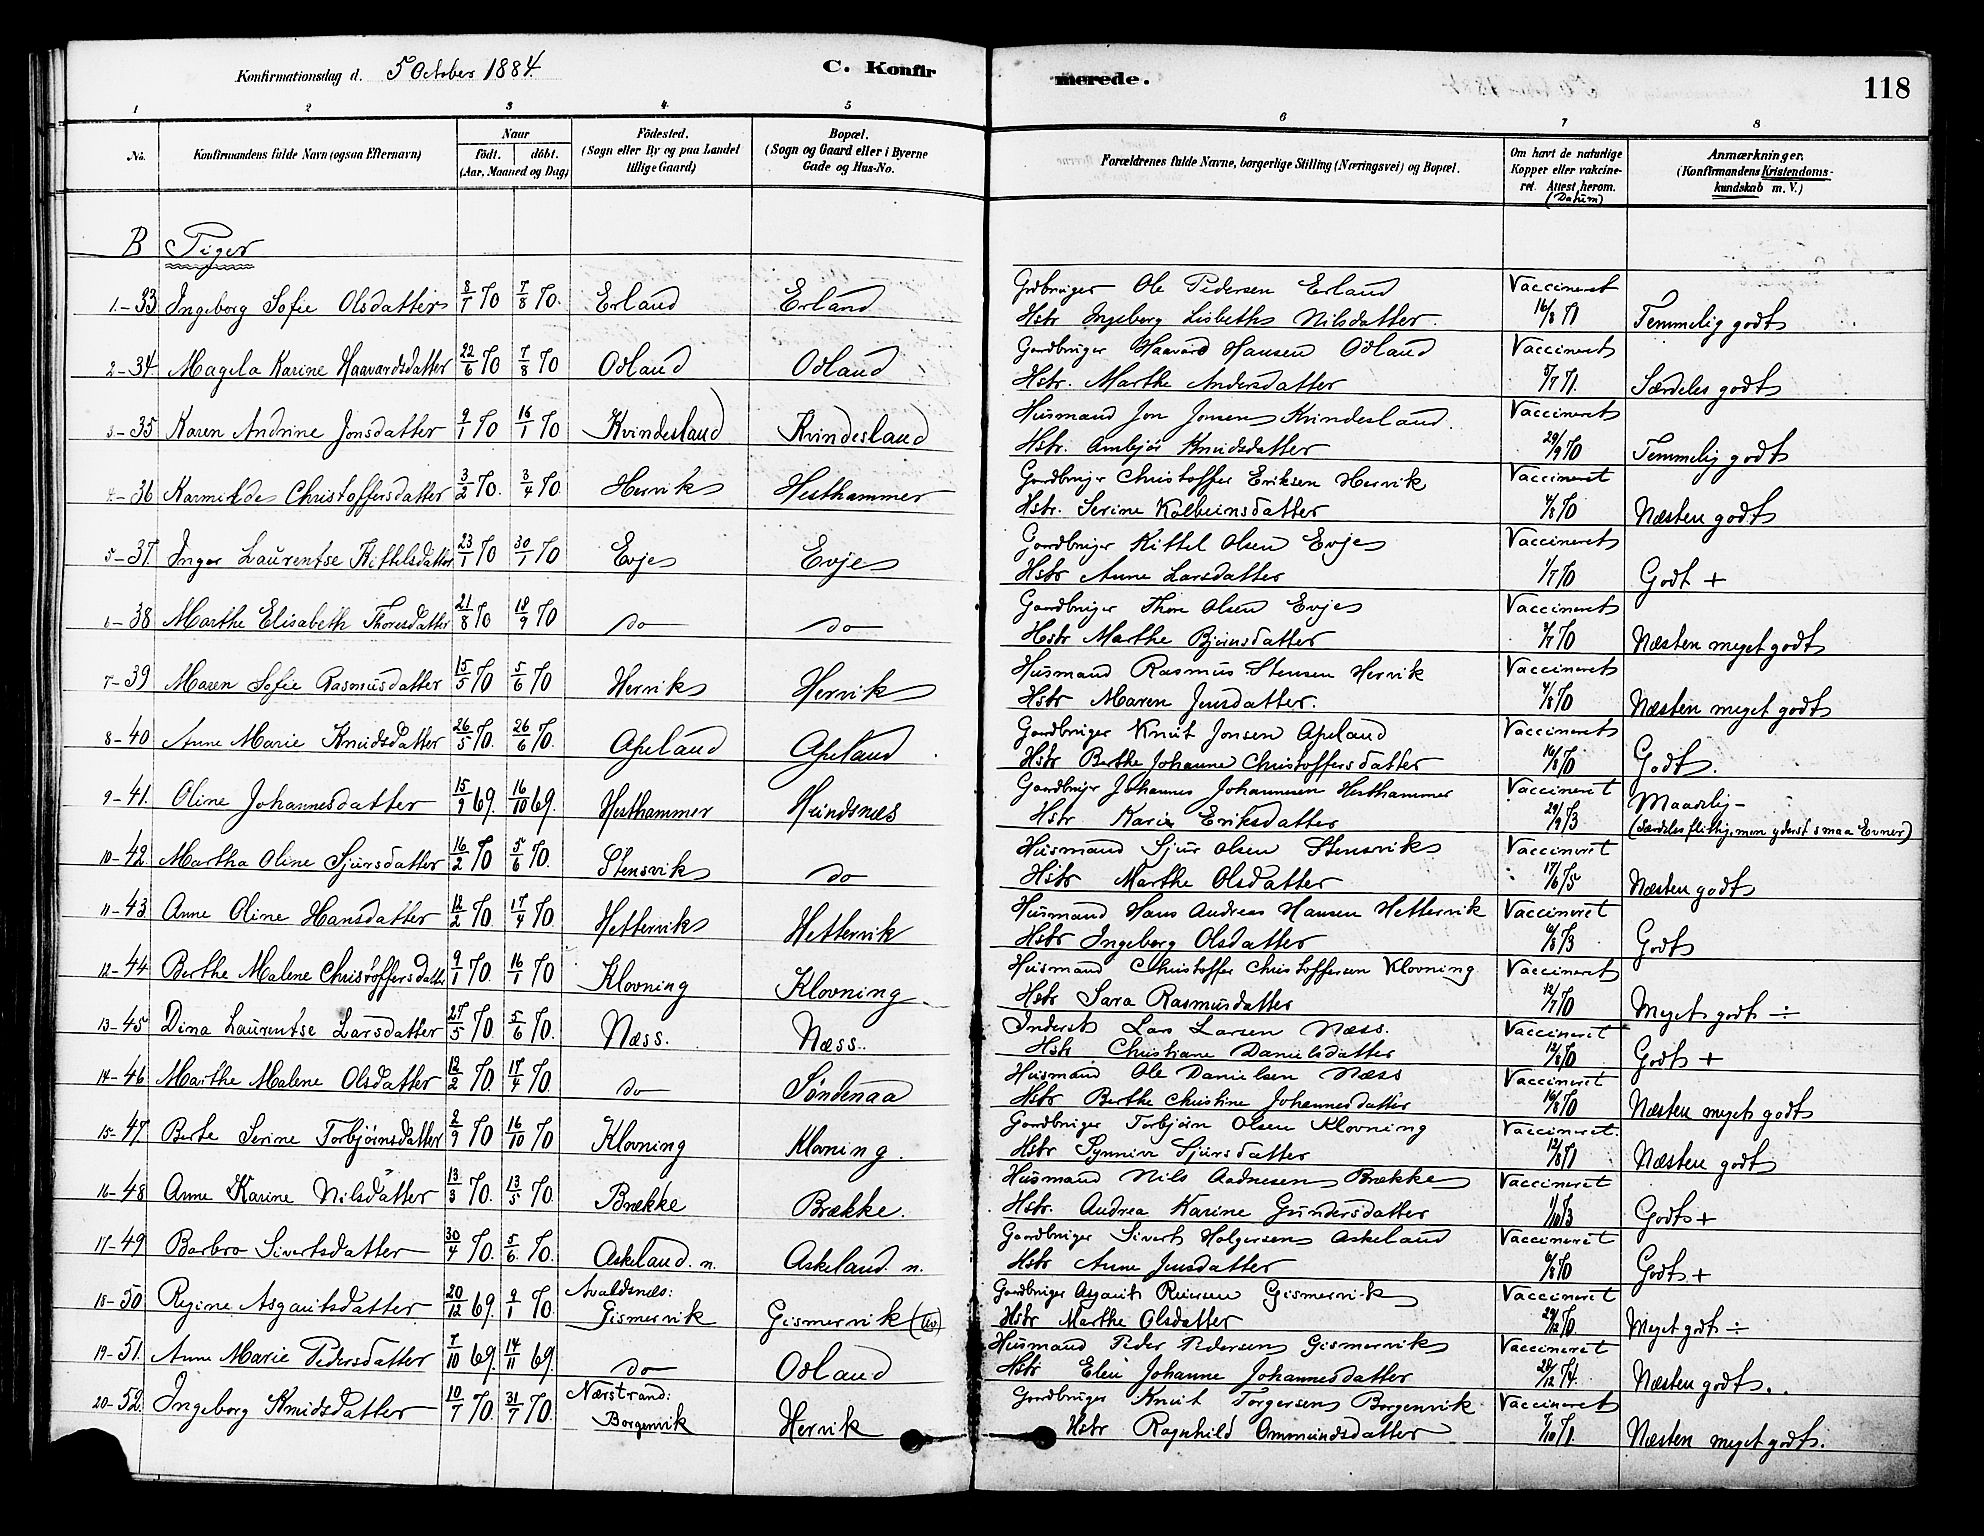 Konfirmationsdag d. 5 October 1884.
C. Konfirmerede.
118
1 2 3 4 5 6 7 8
No.
Konfirmandens fulde Navn (ogsaa Efternavn)
Naar
födt. döbt.
(Aar, Maaned og Dag)
Födested.
(Sogn eller By og paa Landet tillige Gaard)
Bopæl.
(Sogn og Gaard eller i Byerne Gade og Hus-No.
Forældrenes fulde Navne, borgerlige Stilling (Næringsvei) og Bopæl.
Om havt de naturlige Kopper eller vakcineret. Attest herom. (Datum)
Anmærkninger.
(Konfirmandens Kristendomskundskab m. V.)
B Piger
1.-33 Ingeborg Sofie Olsdatter 8/7 70 7/8 70. Erland Erland Grdbruger Ole Pedersen Erland Vaccineret
Hstr Ingeborg Lisbeth Nilsdatter. 16/8 71 Temmelig godt
2-34 Magela Karine Haavardsdatter 22/6 70 7/8 70 Odland Odland Gardbruger Haavard Hansen Odland Vaccineret
Hstr. Marthe Andersdatter 5/7 71. Særdeles godt
3-35 Karen Andrine Jonsdatter 9/1 70 16/1 70 Kvindesland Kvindesland Husmand Jon Jonsen Kvindesland. Vaccineret
Hstr. Ambjør Knudsdatter 29/9 70 Temmelig godt
4-36 Karmilde Christoffersdatter 3/2 70. 3/4 70. Hervik Hesthammer Gardbruger Christoffer Eriksen Hervik Vaccineret
Hstr. Serine Kolbeinsdatter 4/8 70 Næsten godt
5-37 Inger Laurentse Kittelsdatter 23/1 70 30/1 70 Evje Evje Gardbruger Kittel Olsen Evje Vaccineret
Hstr Anne Larsdatter 1/7 70 Godt +
6-38 Marthe Elisabeth Thoresdatter 21/8 70 18/9 70 do do Gardbruger Thore Olsen Evje Vaccineret
Hstr Marthe Bjørnsdatter 3/7 70 Næsten meget godt
7-39 Maren Sofie Rasmusdatter 15/5 70 5/6 70 Hervik Hervik Husmand Rasmus Stensen Hervik Vaccineret
Hstr Maren Jensdatter. 4/8 70 Næsten meget godt
8-40 Anne Marie Knudsdatter 26/5 70. 26/6 70. Apeland Apeland Gardbruger Knut Jonsen Apeland Vaccineret
Hstr Berthe Johanne Christoffersdatter 16/8 70 Godt.
9-41. Oline Johannesdatter 15/9 69. 16/10 69. Hesthammer Hundsnæs Gardbruger Johannes Johannesen Hesthammer Vaccineret Maadelig-
Hstr Karin Eriksdatter 29/9 73 (Særdeles flittig, men yderst smaa Evner)
10-42 Martha Oline Sjursdatter 16/2 70 5/6 70. Stensvik do Husmand Sjur Olsen Stensvik Vaccineret
Hstr Marthe Olsdatter 17/6 75 Næsten godt
11-43 Anne Oline Hansdatter 12/2 70. 17/4 70. Hettervik Hettervik Husmand Hans Andreas Hansen Hettervik Vaccineret
Hstr Ingeborg Olsdatter 6/8 73 Godt
12-44 Berthe Malene Christoffersdatter 9/1 70 16/1 70 Klovning Klovning Husmand Christoffer Christoffersen Klovning Vaccineret
Hstr Sara Rasmusdatter 12/7 70 Meget godt ÷
13-45 Dina Laurentse Larsdatter 27/5 70. 5/6 70. Næss. Næss. Inderst Lars Larsen Næss. Vaccineret
Hstr Christiane Danielsdatter 12/8 70 Godt +
14-46 Marthe Malene Olsdatter 12/2 70. 17/4 70. do Söndenaa Husmand Ole Danielsen Næss Vaccineret
Hstr Berthe Christine Johannesdatter 16/8 70 Næsten meget godt
15-47 Berte Serine Torbjörnsdatter 2/9 70 16/10 70 Klovning Klovning. Gardbruger Torbjörn Olsen Klovning Vaccineret.
Hstr Synnive Sjursdatter 12/8 71 Næsten godt
16-48 Anne Karine Nilsdatter 13/3 70. 13/5 70. Brække Brække. Husmand Nils Aadnesen Brække Vaccineret
Hstr. Andrea Karine Gundersdatter 1/10 73 Godt +
17-49 Barbro Sivertsdatter 30/4 70. 5/6 70. Askeland. n. Askeland. n. Gardbruger Sivert Holgersen Askeland Vaccineret
Hstr Anne Jensdatter 6/8 70 Godt +
18-50 Regine Asgautsdatter 20/12 69. 9/1 70. Avaldsnes: Gismervik Gismervik (Av) Gardbruger Asgaut Reiersen Gismervik Vaccineret
Hstr Marthe Olsdatter 29/12 70 Meget godt ÷
19-51. Anne Marie Pedersdatter 7/10 69. 14/11 69 do Odland Husmand Peder Pedersen Gismervik Vaccineret
Hstr Elen Johanne Johannesdatter 28/12 74. Næsten godt.
20-52 Ingeborg Knudsdatter 10/7 70. 31/7 70. Nærstrand: Borgenvik Hervik Gardbruger Knut Torgersen Borgenvik Vaccineret
Hstr Ragnhild Ommundsdatter 7/10 71. Næsten meget godt.